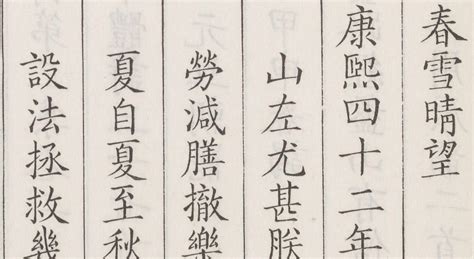 春雪晴望
康熙四十二年
山左尤甚朕
勞減膳撤樂
夏自夏至秋
設法拯救幾